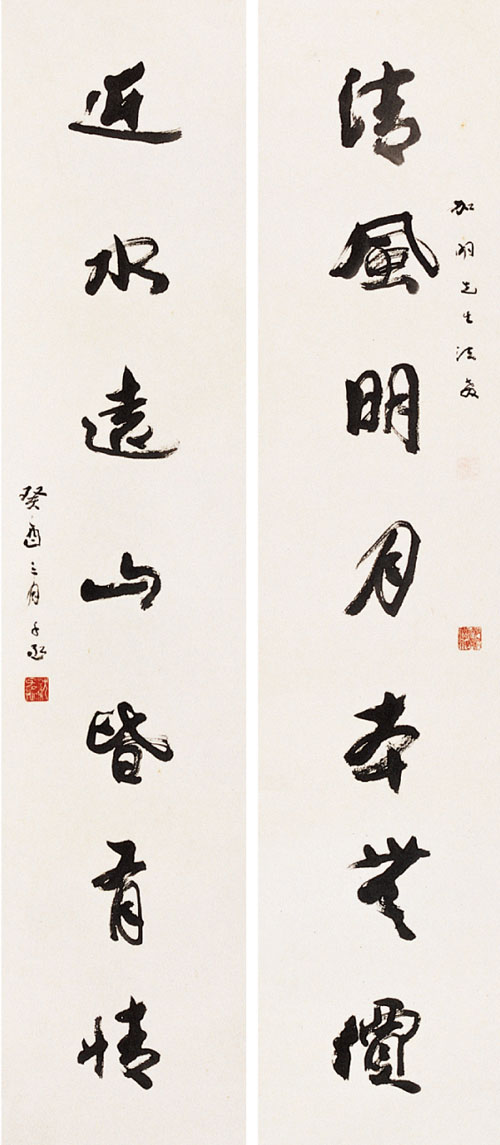 清風明月本無價
加羽先生法教
近水遠山皆有情
癸酉三月